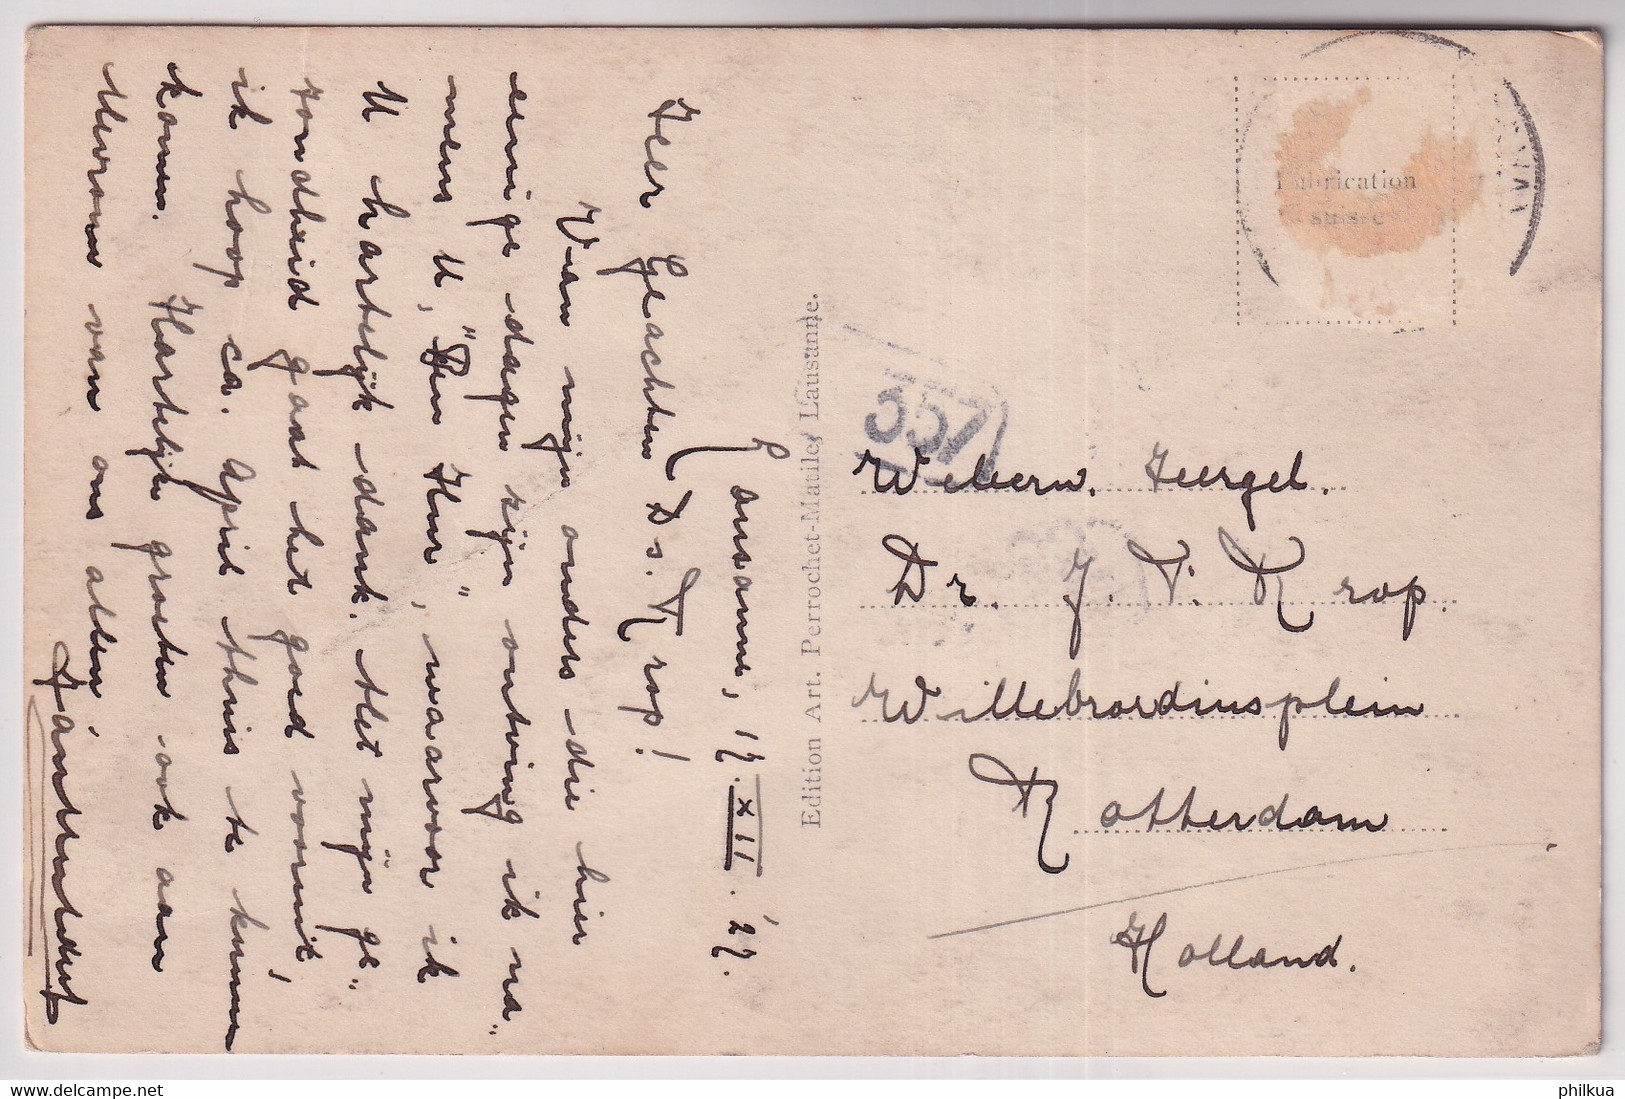 Lausanne, 17.XII.'27.
Zeer Geachten Ds. Krop!
Van mijn ouders die hier
eenige dagen zijn ontving ik na„
mens U, "Den Heer", waarvoor ik
U hartelijk dank. Met mijn ge„
zondheid gaat het goed vooruit,
ik hoop ca. April thuis te kunnen
komen. Hartelijke groeten ook aan
Mevrouw van ons allen
Edition Art. Perrochet-Matile, Lausanne.
Fabrication
suisse
357
Weleerw. Zeergel.
Dr. J. F. Krop.
Willebrordusplein
Rotterdam
Holland.
philkua